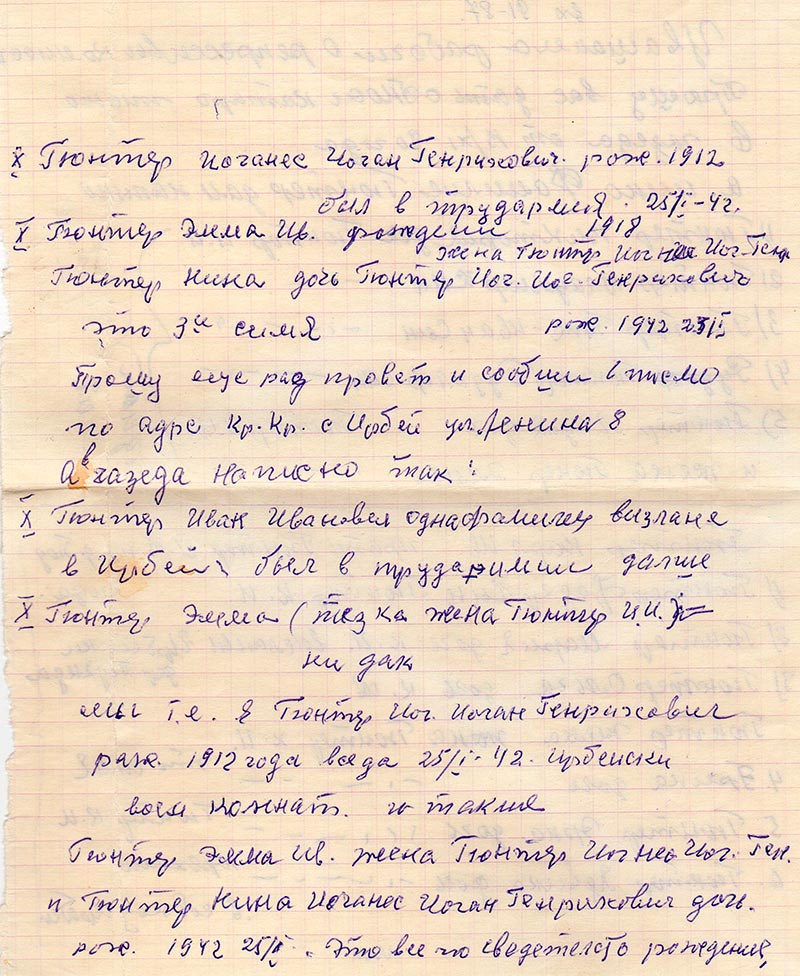 X Гюнтер Иоганес Иоган Генрихович. рож. 1912
был в трудармия. 25/I-42.
X Гюнтер Эмма Ив. рождении 1918
жена Гюнтер Иог. Ген
Гюнтер Нина дочь Гюнтер Иог. Иог. Генрихович
это 3се симя рож. 1942 25/I
Прошу еще рад провет и сообши писмо
по адре Кр. Кр. с Ирбей ул Ленина 8
А в газеда написно так:
X Гюнтер Иван Иванович однафамилец визлане
в Ирбей был в трудармии далше
X Гюнтер Эмма (тезка жена Гюнтер И.И.)
ни дак
мы т.е. я Гюнтер Иог. Иоган Генрихович
рож. 1912 года взеда 25/I-42. Ирбейски
воен комнат. и такия
Гюнтер Эмма Ив. жена Гюнтер Иог. Ген.
и Гюнтер Нина Иоганес Иоган Генрихович дочь.
рож. 1942 25/I. Это все по сведетелсто рождения,